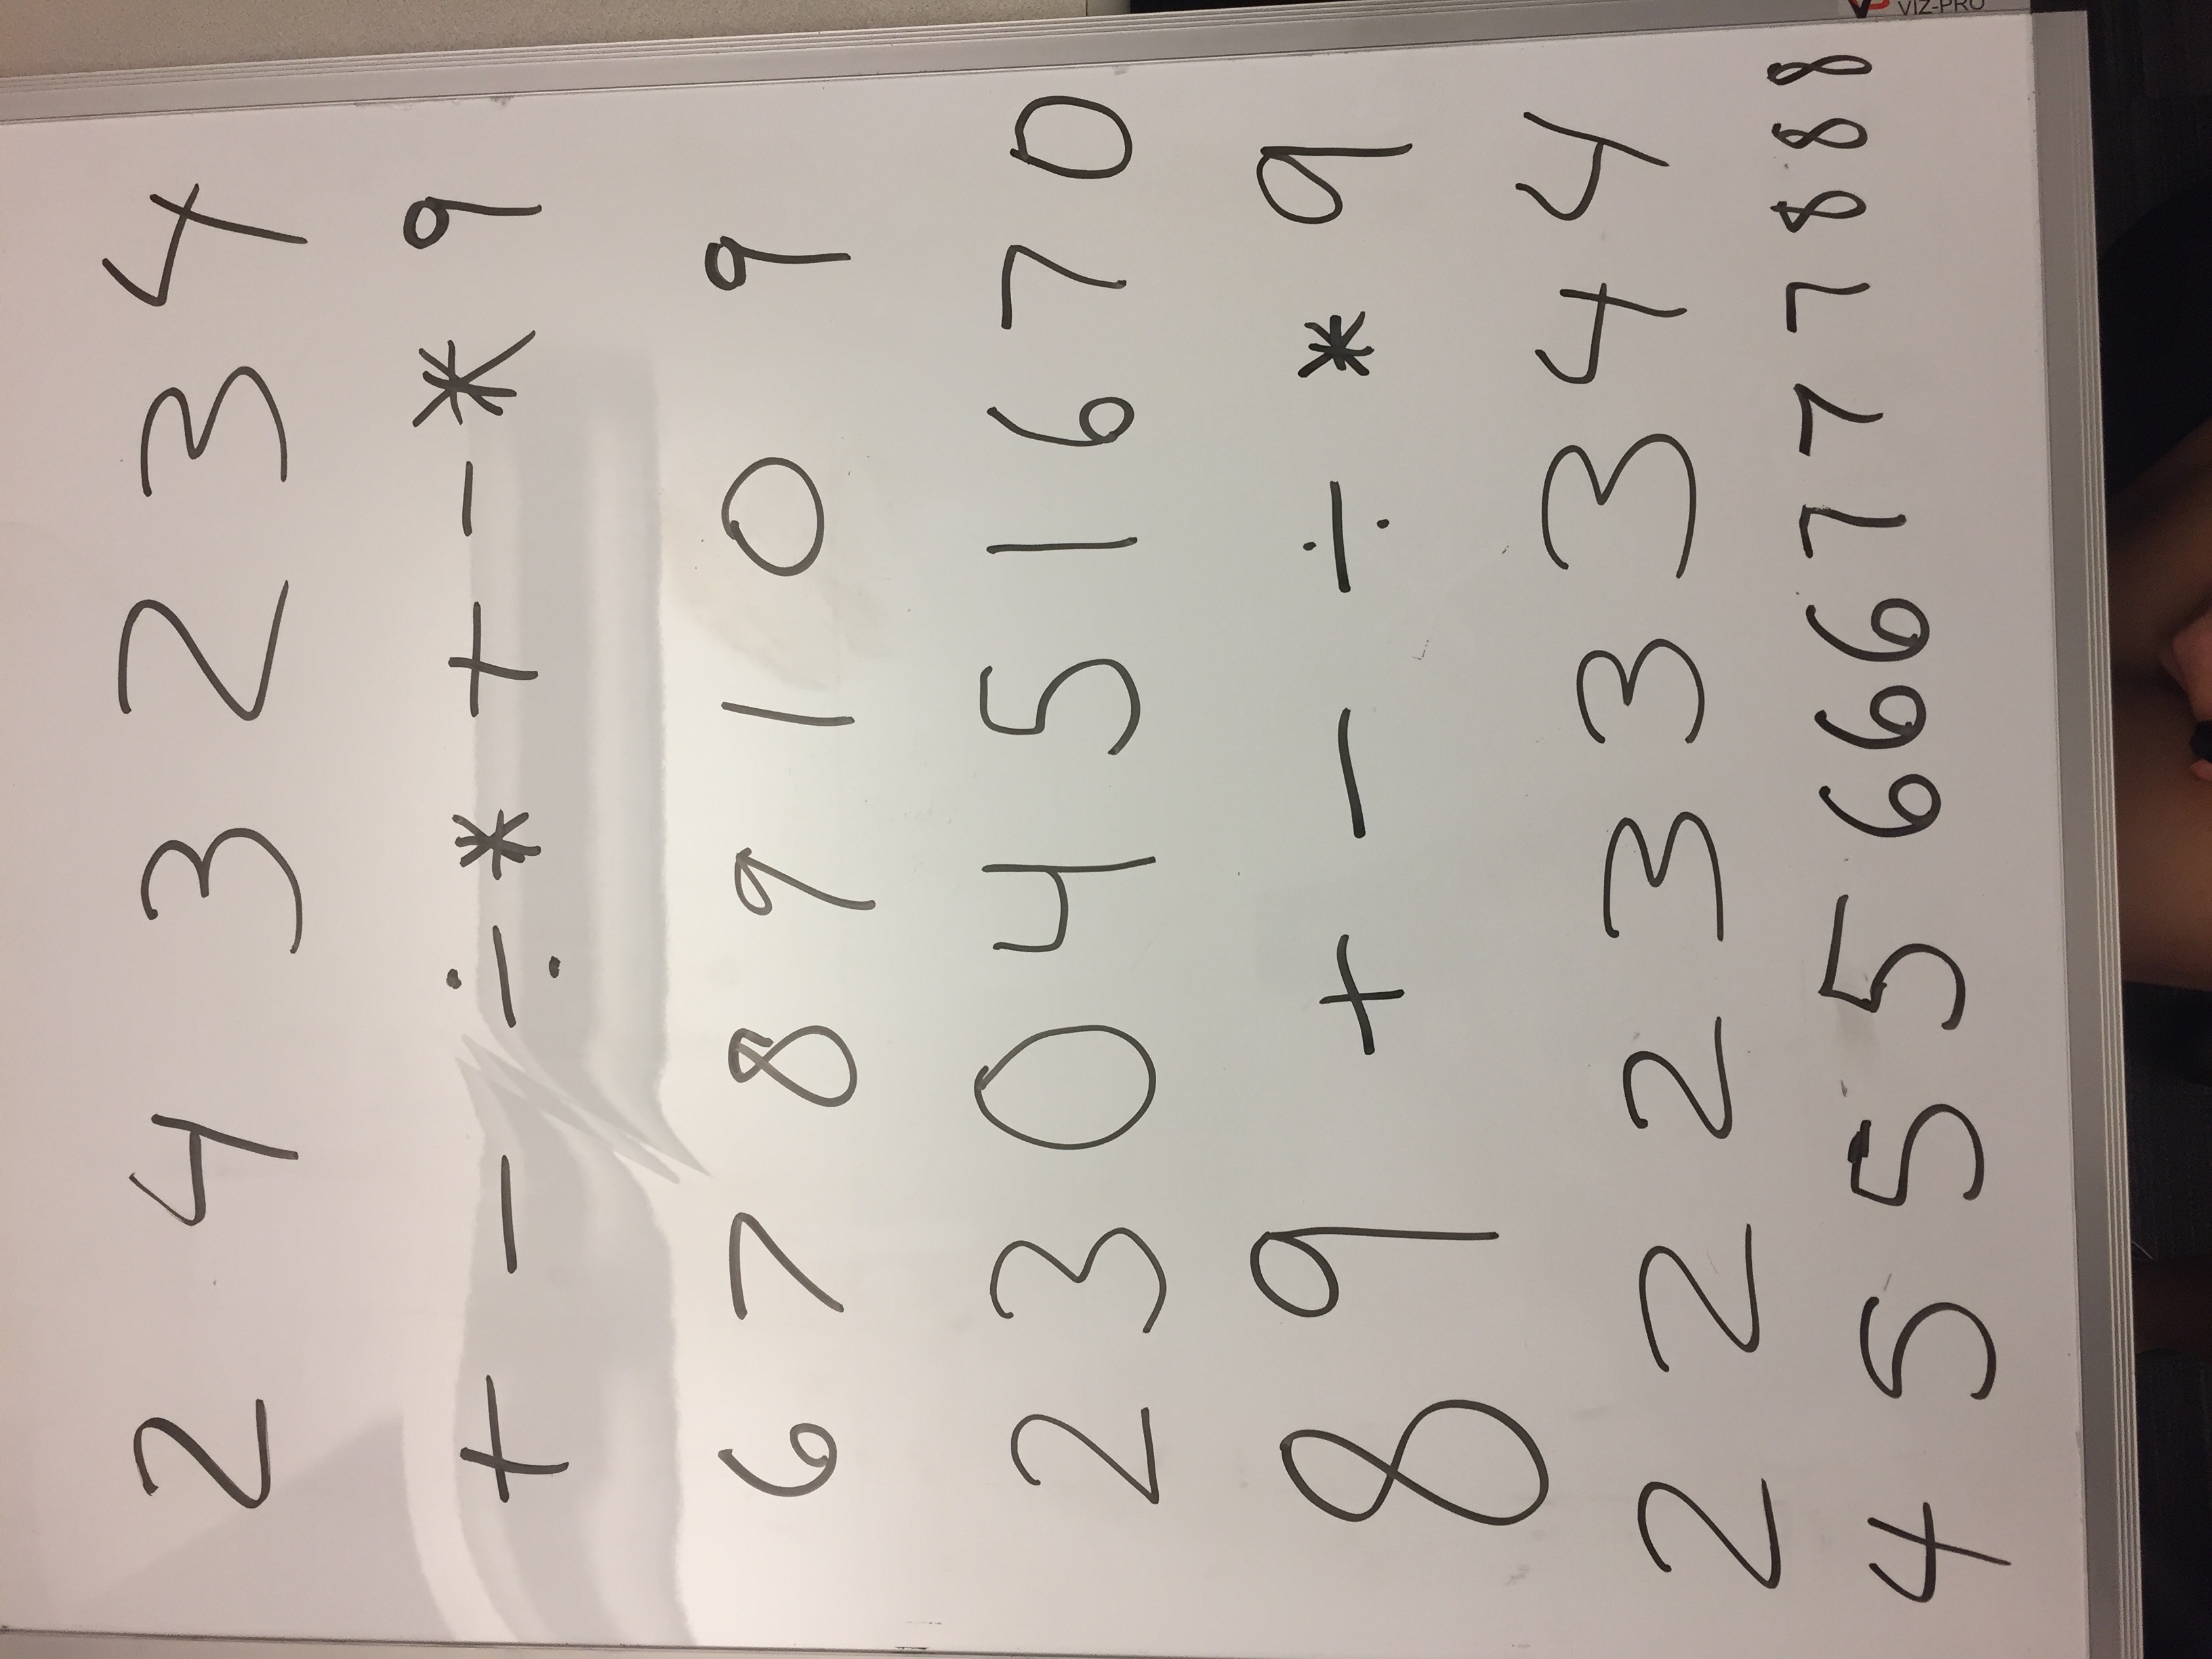 2 4 3 2 3 4
+ - ÷ * + - * 9
6 7 8 9 1 0 9
2 3 0 4 5 1 6 7 0
8 9 + - ÷ * 9
2 2 2 3 3 3 4 4
4 5 5 5 6 6 6 7 7 7 8 8 8
VIZ-PRO